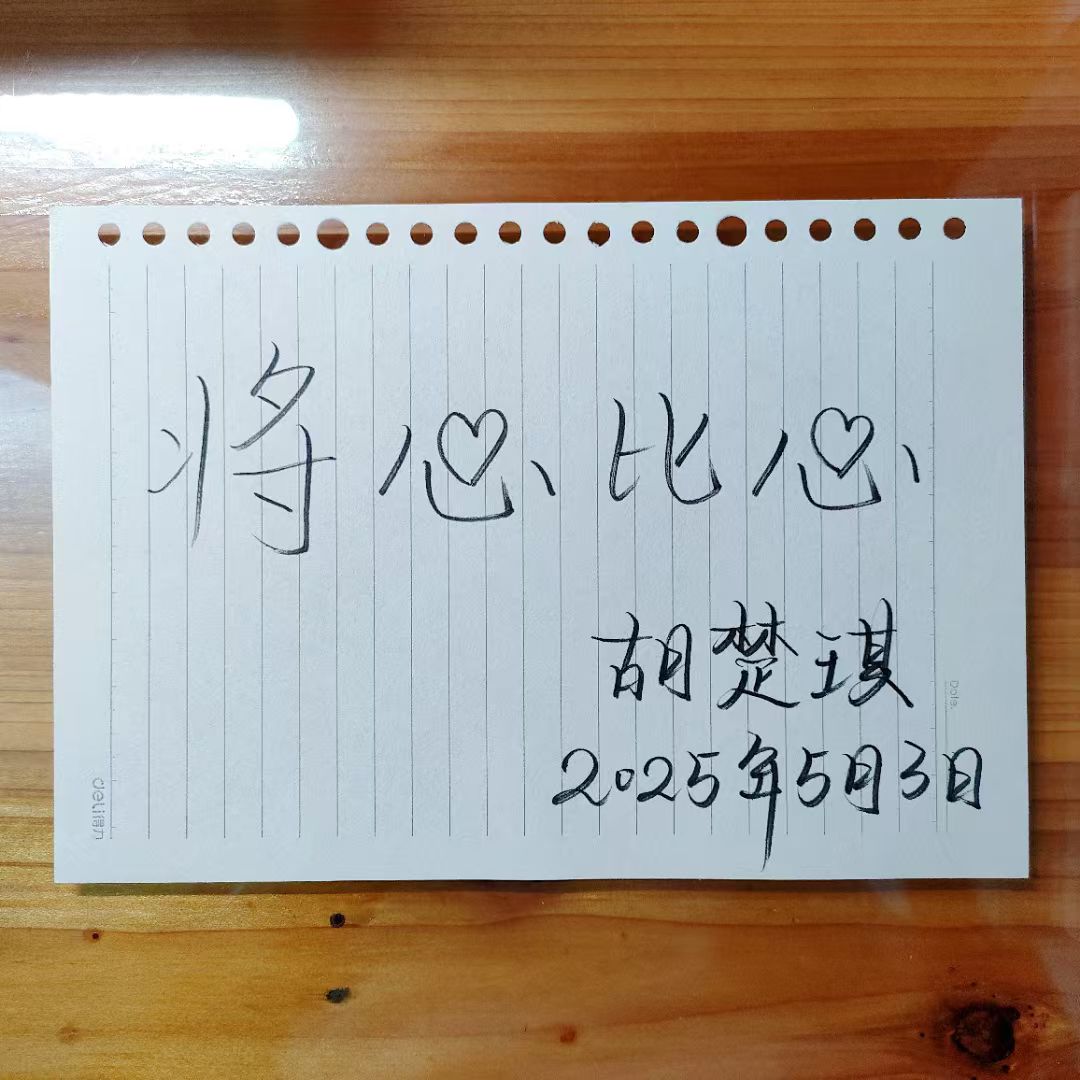 将心比心
胡楚琪
2025年5月3日
Date.
deli得力